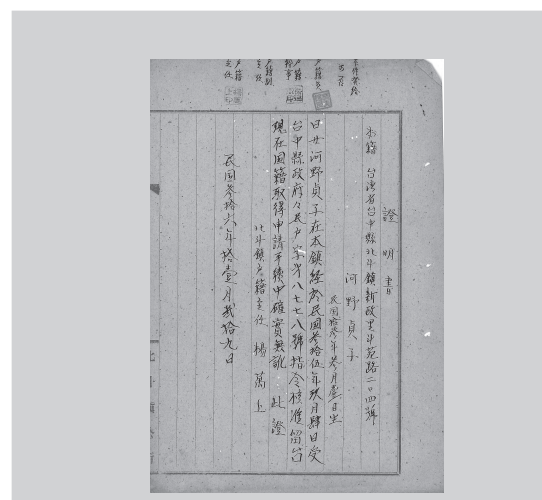 證明書
本籍 台灣省台中縣北斗鎮新政里斗苑路二〇四號
河野貞子
民國拾參年參月壹日生
日女河野貞子在本鎮經於民國參拾伍年玖月肆日受
台中縣政府
民戶字第八七七八號指令核准留台
現在國籍取得申請手續中確實無訛 此證
北斗鎮戶籍主任 楊萬上
民國參拾六年拾壹月貳拾九日